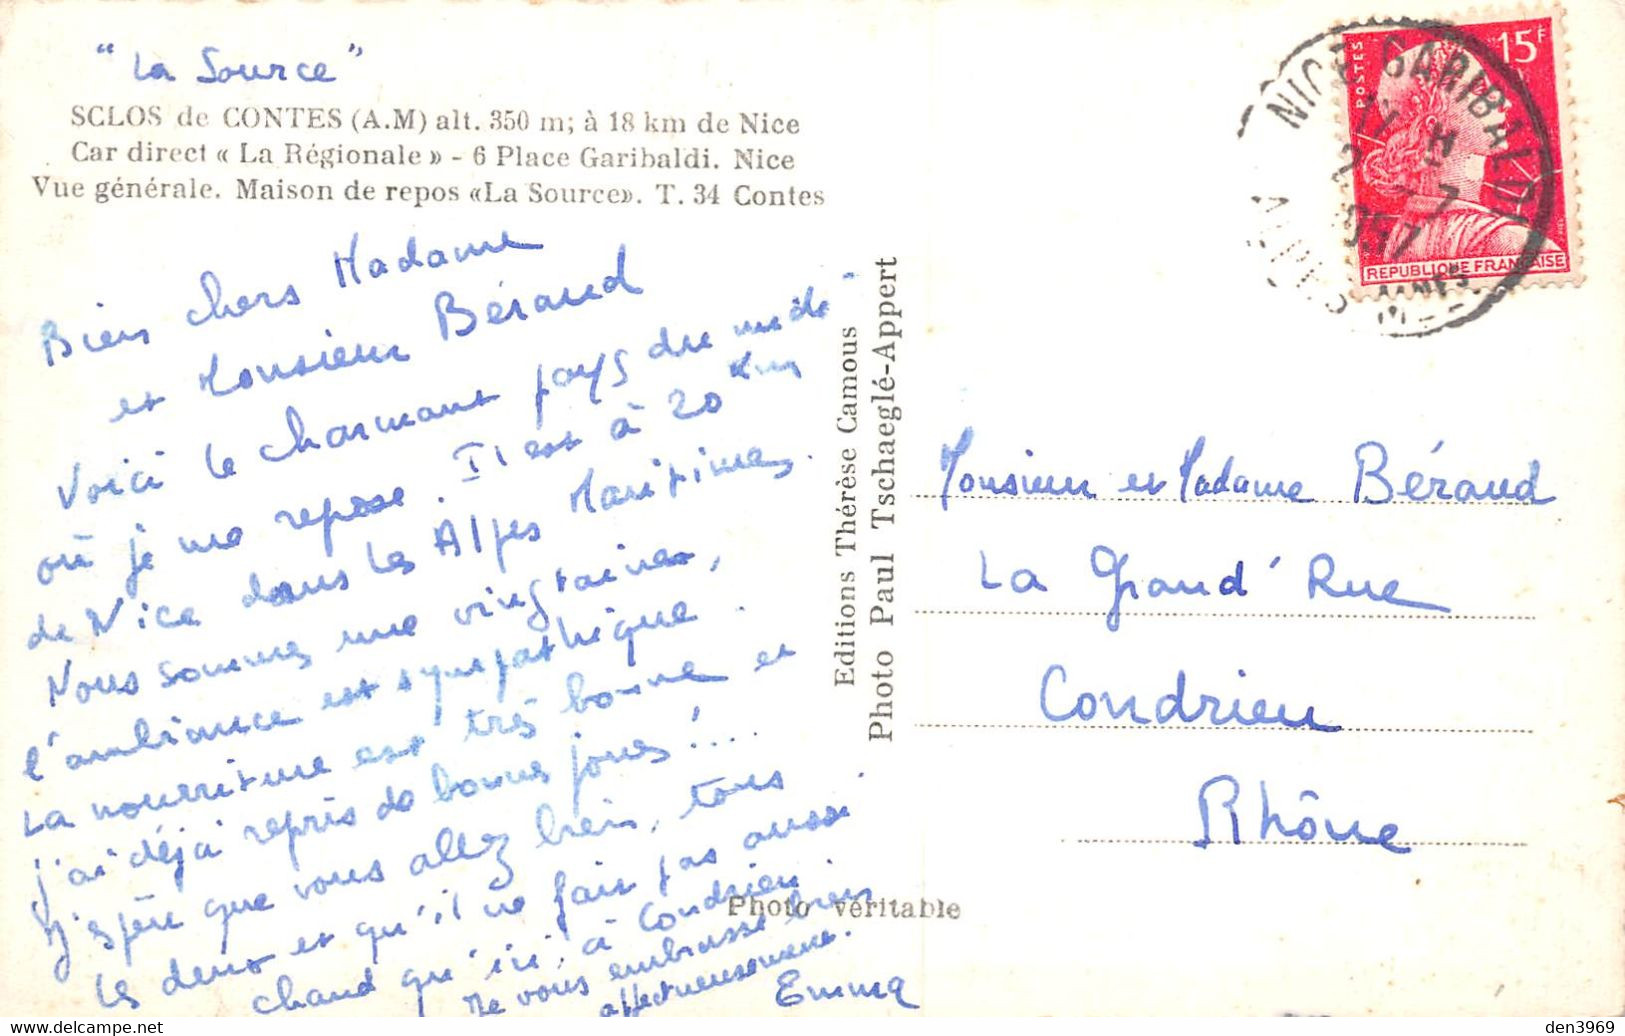 "La Source"
SCLOS de CONTES (A.M) alt. 350 m; à 18 km de Nice
Car direct « La Régionale » - 6 Place Garibaldi. Nice
Vue générale. Maison de repos «La Source». T. 34 Contes
Bien chers Madame
et Monsieur Béraud
Voici le charmant pays du midi
où je me repose. Il est à 20 km
de Nice dans les Alpes Maritimes.
Nous sommes une vingtaine,
l'ambiance est sympathique.
La nourriture est très bonne et
j'ai déjà repris de bonnes joues!....
J'espère que vous allez bien, tous
les deux et qu'il ne fait pas aussi
chaud qu'ici, à Condrieu
Je vous embrasse bien
affectueusement.
Emma
Editions Thérèse Camous
Photo Paul Tschaeglé-Appert
Photo véritable
POSTES
15F
REPUBLIQUE FRANÇAISE
NICE GARIBALDI
2 - 7
1957
ALPES MMES
Monsieur et Madame Béraud
La Grand' Rue
Condrieu
Rhône
den3969